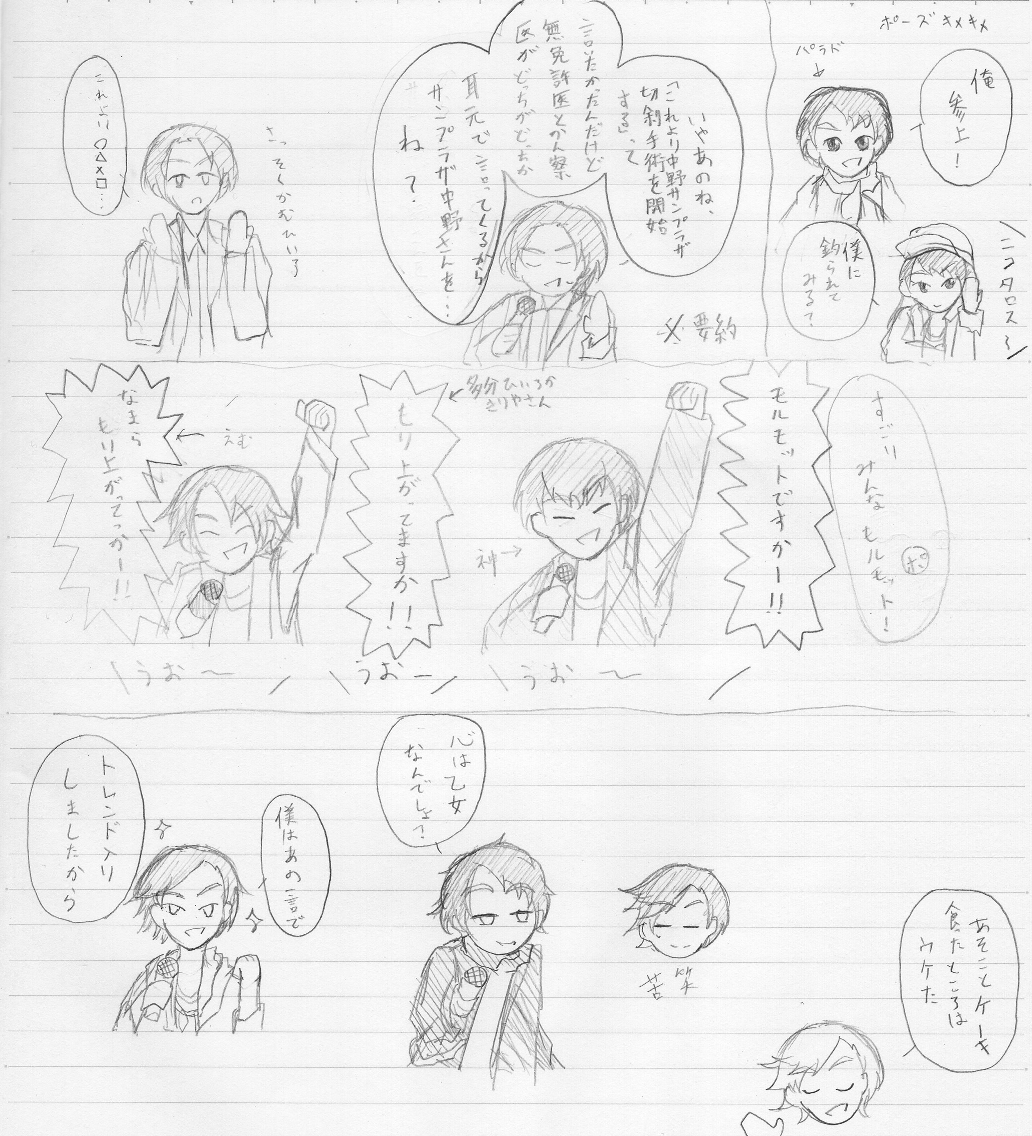 ポーズ キメキメ
俺
参上!
パラド
僕に
釣られて
みる?
いやあのね、
「これより中野サンプラザ
切剥手術を開始
する」って
言いたかったんだけど
無免許医とか監察
医がどっちがどっちか
耳元で言ってくるから
サンプラザ中野さんを…
ね?
※要約
さっそくかむひいろ
これより○△×□…
すごい
みんな モルモット!
ポ
モルモットですかー!!
神→
多分ひいろか
きりやさん
もり上がってますか!!
えむ
なまら
もり上がってっかー!!
うお〜
うおー
うお〜
あそことケーキ
食たところは
ウケた
苦笑
心は乙女
なんでしょ?
僕はあの一言で
トレンド入り
しましたから